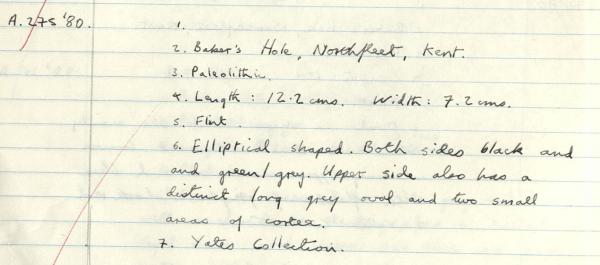 A.275 '80.
1.
2. Baker's Hole, Northfleet, Kent.
3. Paleolithic.
4. Length : 12.2 cms. Width : 7.2 cms.
5. Flint.
6. Elliptical shaped. Both sides black and
and green/grey. Upper side also has a
distinct long grey oval and two small
areas of cortex.
7. Yates Collection.